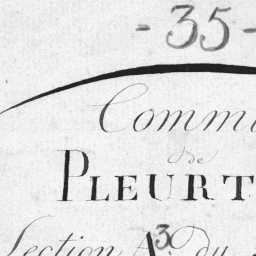 - 35 -
Commu
de
PLEURT
Section A3. du